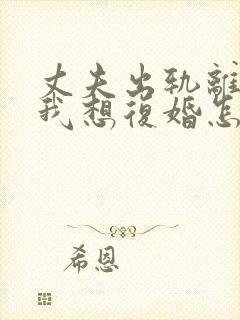 丈夫出轨離
我想復婚怎
希恩